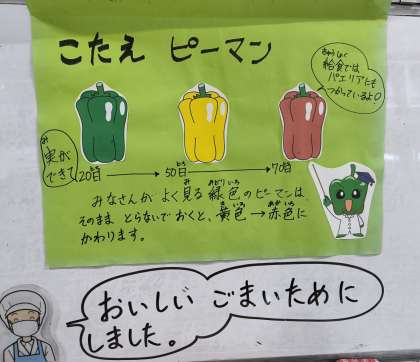 こたえ ピーマン
きゅうしょく
給食では
パエリアにも
つかっているよ
み
実が
できて
20日 → 50日 → 70日
みなさんが よく見る 緑色のピーマンは、
そのまま とらないで おくと、黄色→赤色に
かわります。
おいしい ごまいために
しました。